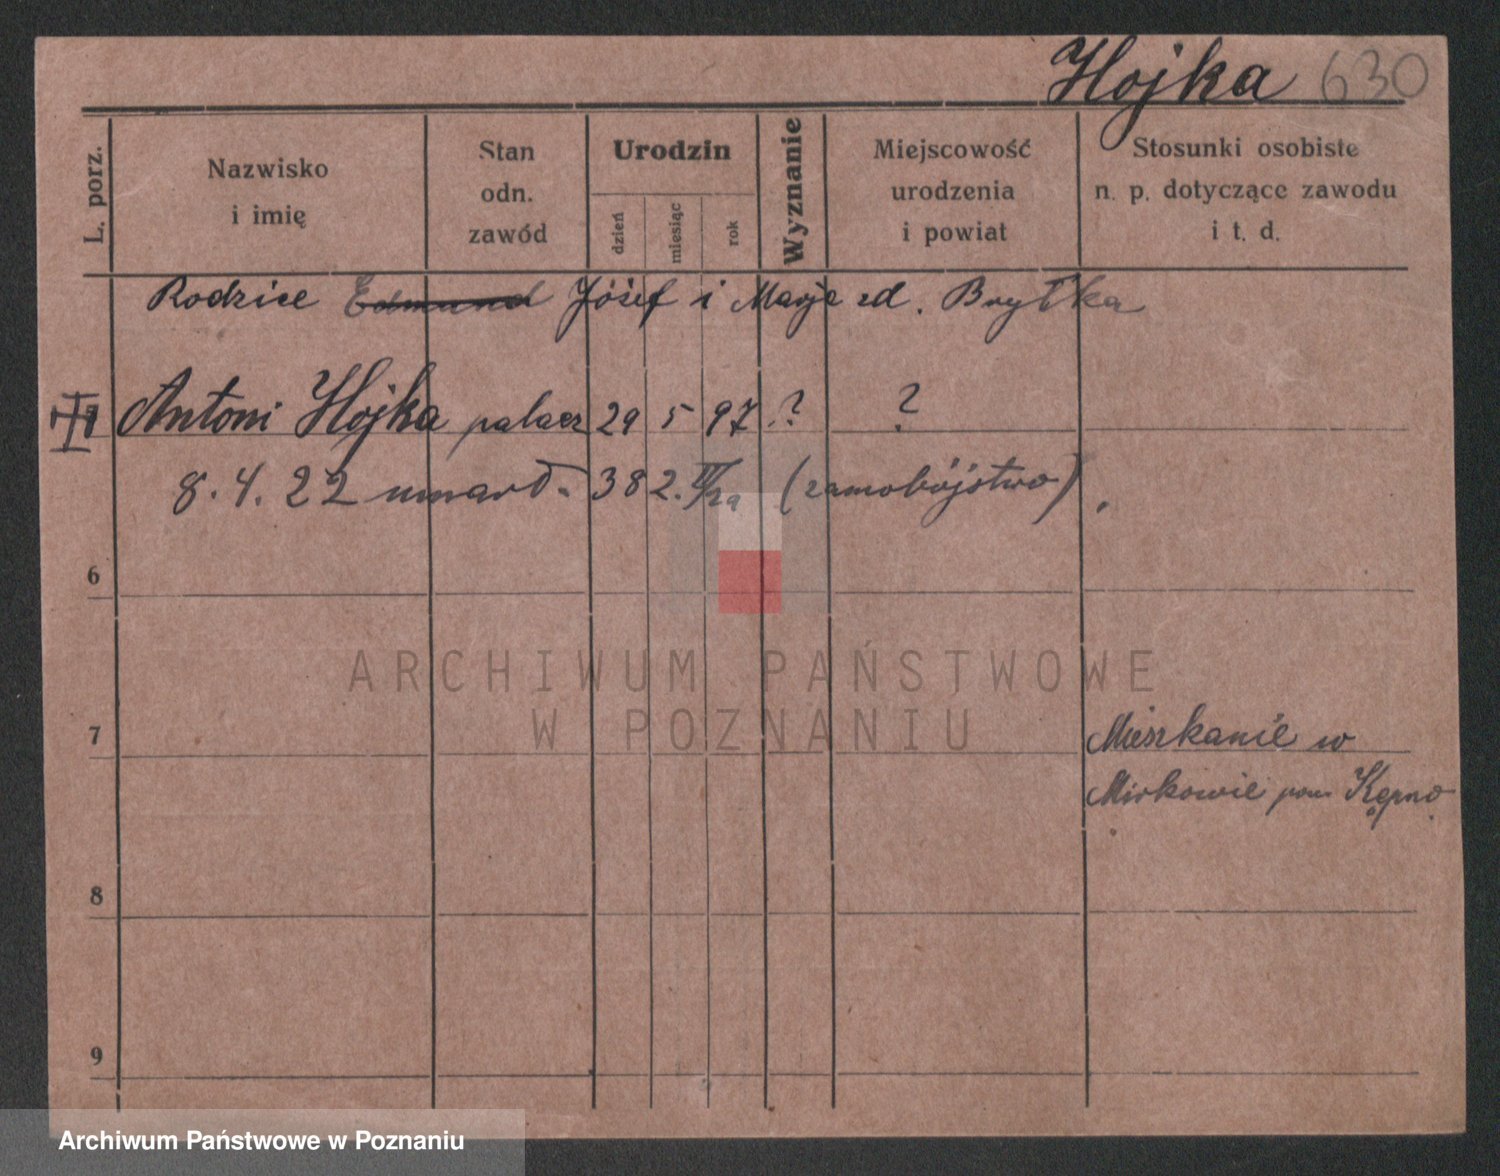 Hojka 630
L. porz.
Nazwisko
i imię
Stan
odn.
zawód
Urodzin
dzień
miesiąc
rok
Wyznanie
Miejscowość
urodzenia
i powiat
Stosunki osobiste
n. p. dotyczące zawodu
i t. d.
Rodzice Edmund Józef i Marje zd. Bryłka
Antoni Hojka palacz 29 5 97 ? ?
8. 4. 22 umarł. 38 2. (samobójstwo).
6
ARCHIWUM PAŃSTWOWE
W POZNANIU
7
Mieszkanie w
Mirkowie pow. Kępno.
8
9
Archiwum Państwowe w Poznaniu